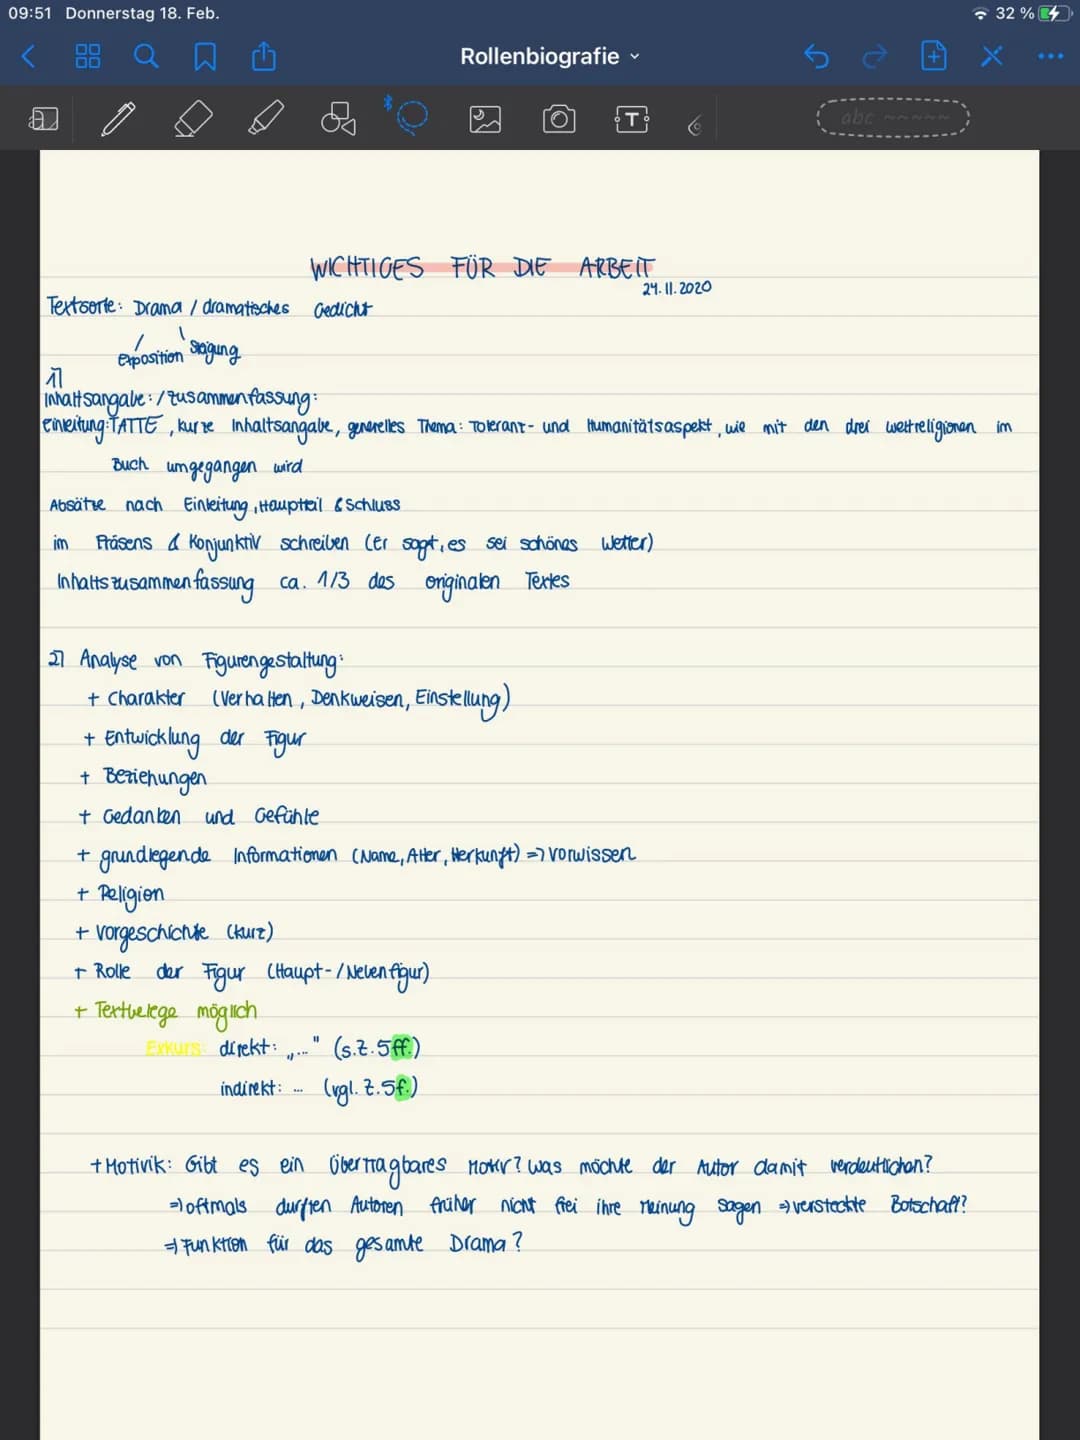 09:51 Donnerstag 18. Feb. 32 %
Rollenbiografie
abc
WICHTIGES FÜR DIE ARBEIT
24.11.2020
Textsorte: Drama / dramatisches Gedicht
Exposition Steigung
1)
Inhaltsangabe: / Zusammenfassung:
Einleitung: TATTE, kurze Inhaltsangabe, generelles Thema: Toleranz- und Humanitätsaspekt, wie mit den drei Weltreligionen im
Buch umgegangen wird
Absätze nach Einleitung, Hauptteil & Schluss
im Präsens & Konjunktiv schreiben (er sagt, es sei schönes Wetter)
Inhaltszusammenfassung ca. 1/3 des originalen Textes
2) Analyse von Figurengestaltung:
+ Charakter (Verhalten, Denkweisen, Einstellung)
+ Entwicklung der Figur
+ Beziehungen
+ Gedanken und Gefühle
+ grundlegende Informationen (Name, Alter, Herkunft) => Vorwissen
+ Religion
+ Vorgeschichte (kurz)
+ Rolle der Figur (Haupt-/Nebenfigur)
+ Textbelege möglich
Exkurs: direkt: „..." (s.Z.5ff.)
indirekt: ... (vgl. Z.5f.)
+ Motivik: Gibt es ein übertragbares Motiv? Was möchte der Autor damit verdeutlichen?
=> oftmals durften Autoren früher nicht frei ihre Meinung sagen => versteckte Botschaft?
=> Funktion für das gesamte Drama?